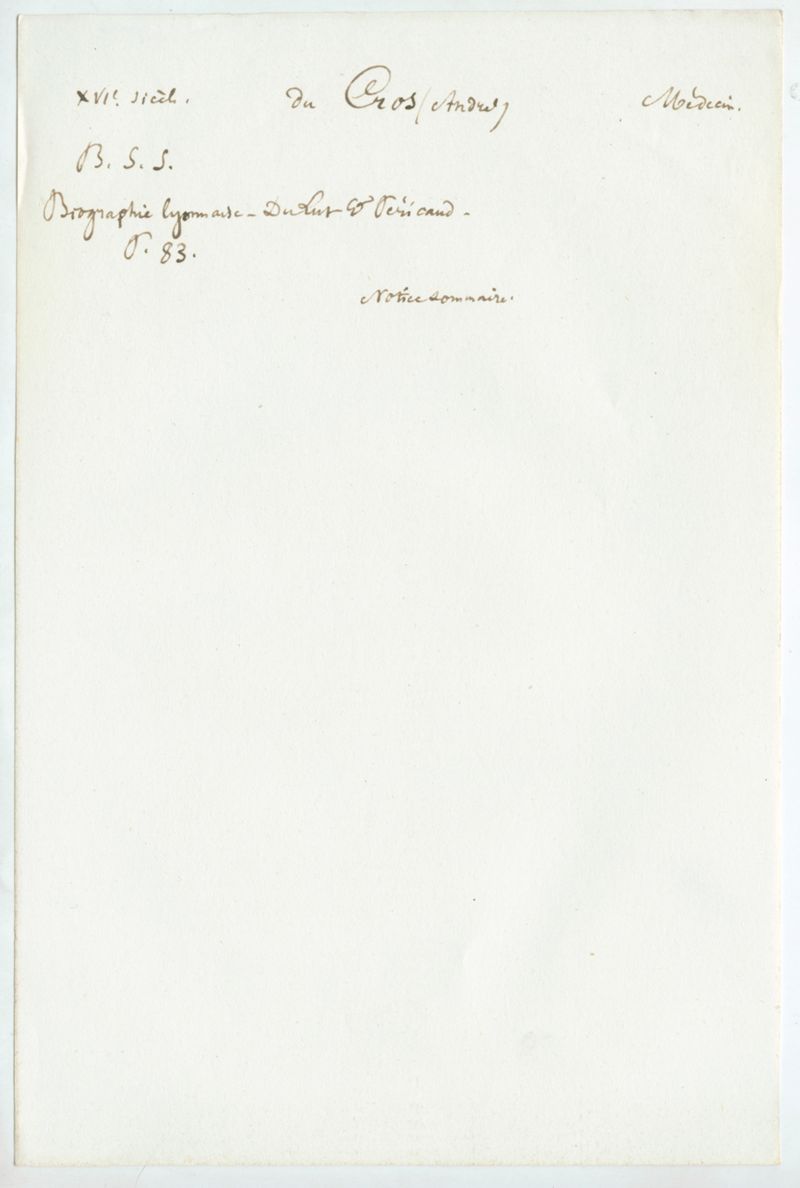 XVIe. siècle. du Cros (André) Médecin.
B. S. S.
Biographie lyonnaise - Du Lut & Péricaud -
P. 83.
Notice sommaire.